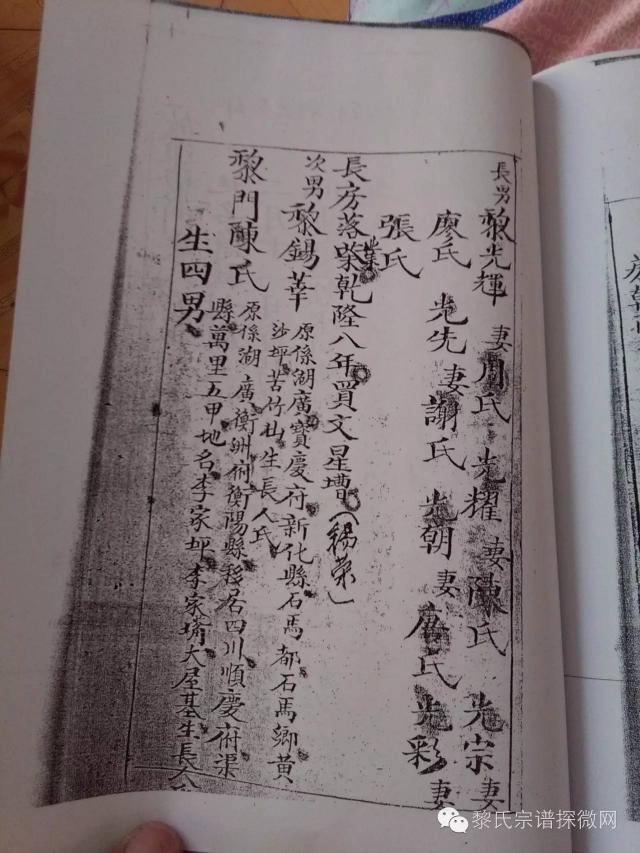 長男 黎光輝 妻周氏 光耀 妻陳氏 光宗 妻
廖氏 光先 妻謝氏 光朝 妻 氏 光彩 妻
張氏
長房落業乾隆八年買文星壋（錫荣）
次男 黎錫華 原係湖廣寶慶府新化縣石馬都石馬鄉黃
沙坪苦竹山生長人氏
黎門陳氏 原係湖廣衡州府衡陽縣移居四川順慶府渠
縣萬里五甲地名李家坪李家 大屋基生長人
生四男
黎氏宗谱探微网